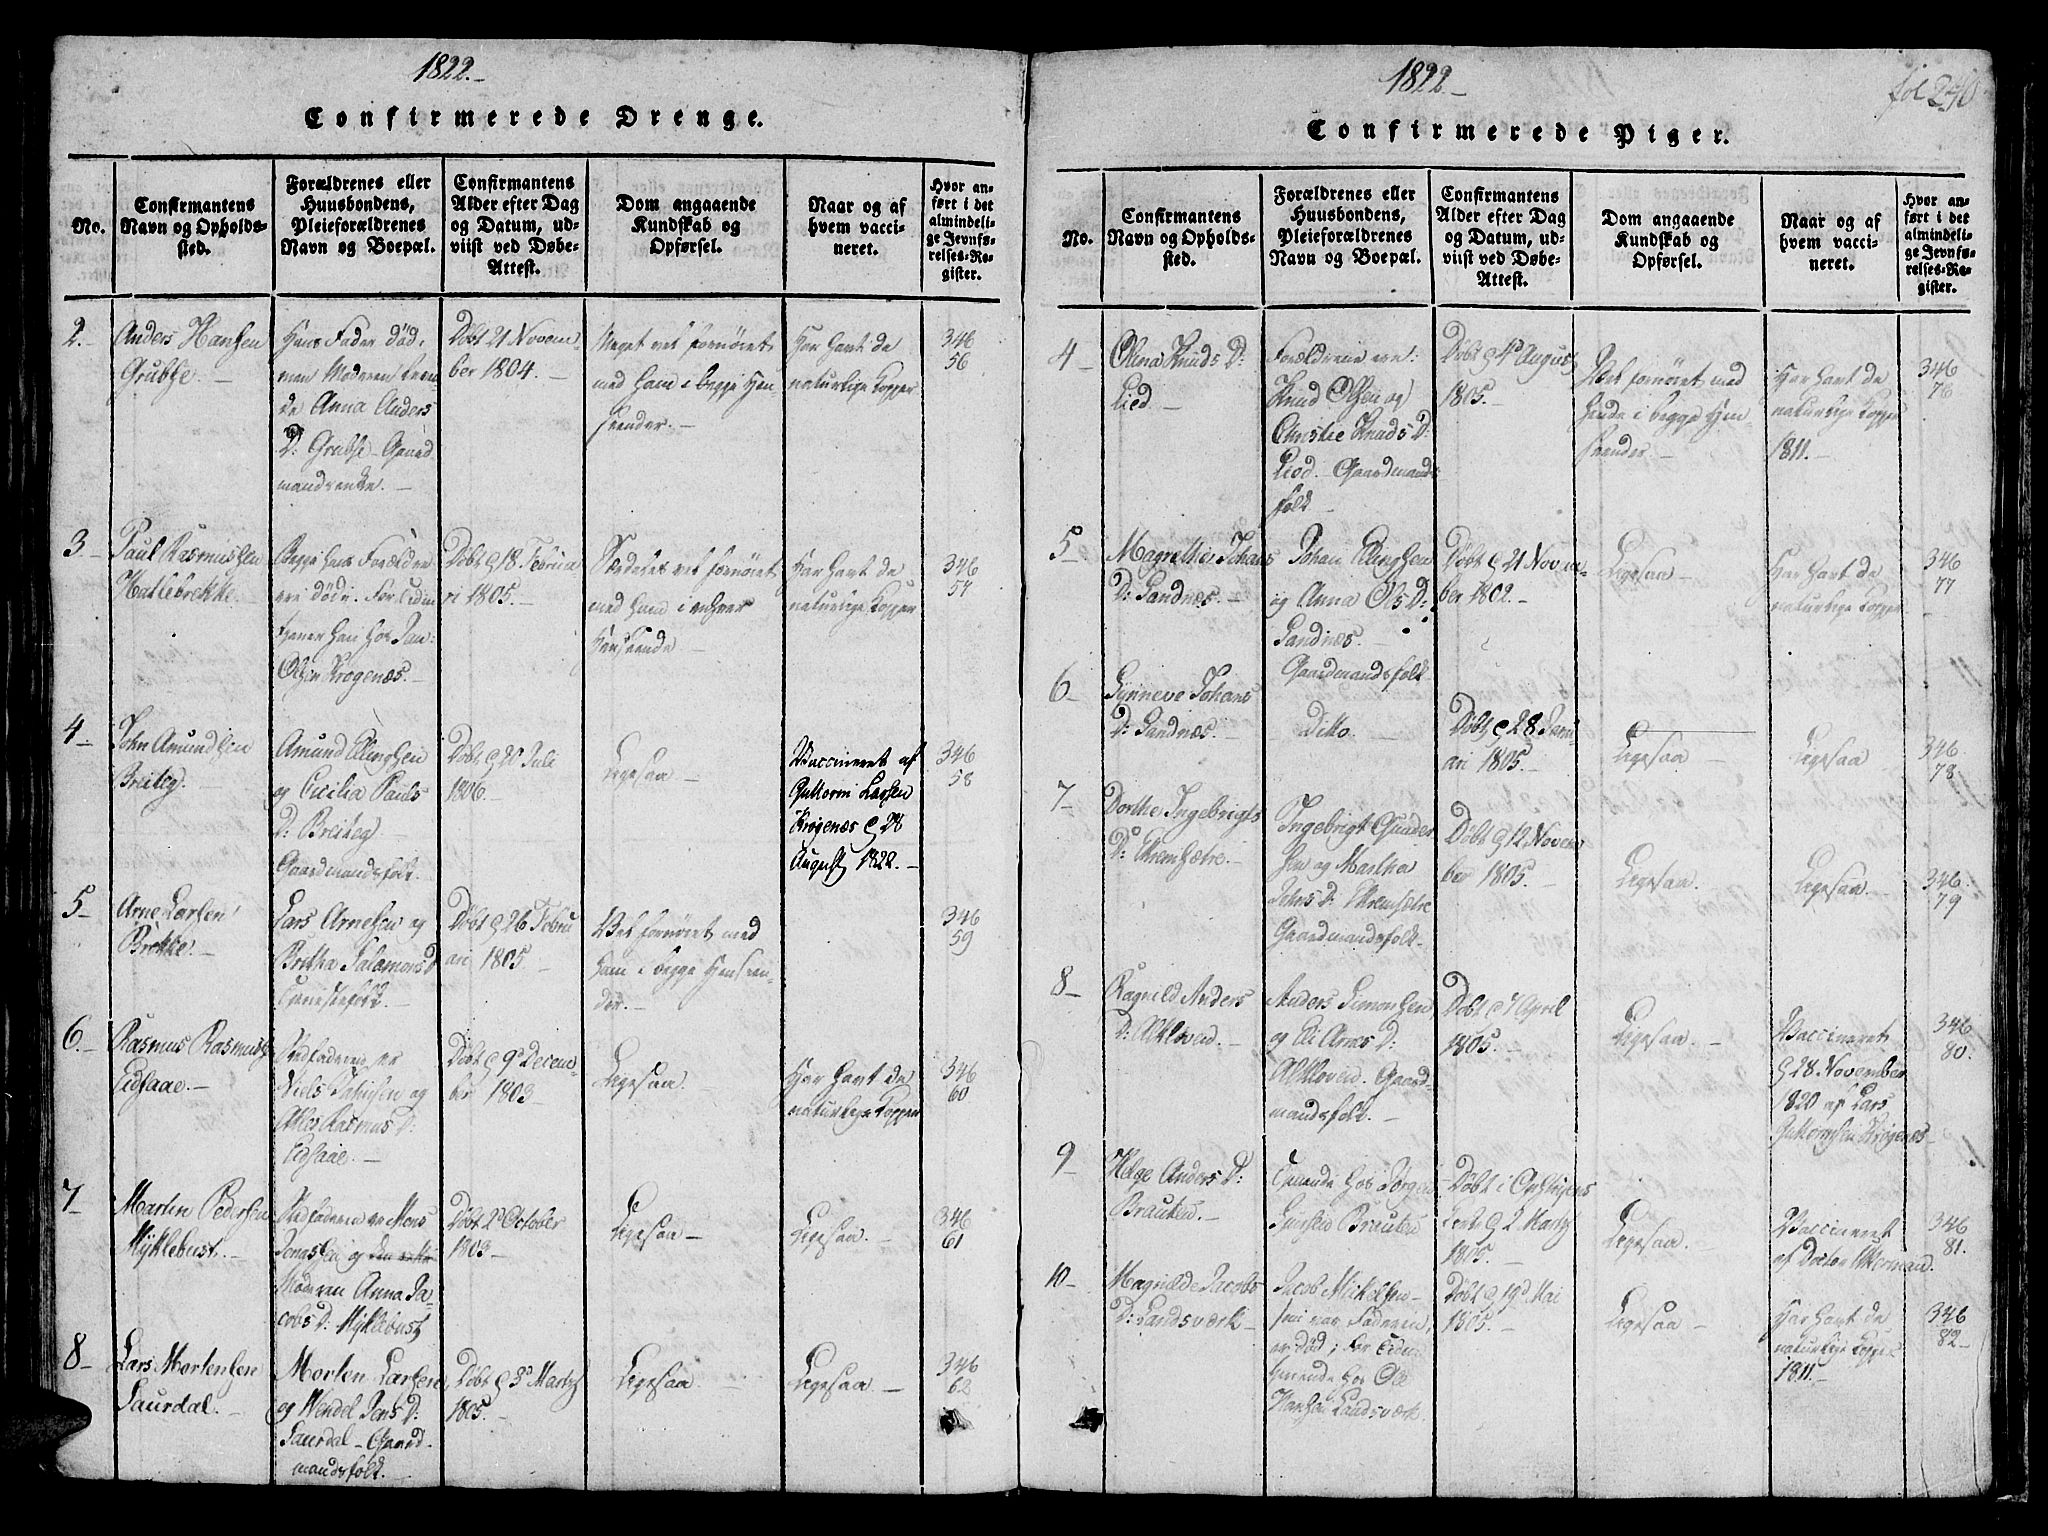 1822.-
Confirmerede Drenge.
No.
Confirmantens
Navn og Opholds-
sted.
Forældrenes eller
Huusbondens,
Pleieforældrenes
Navn og Boepæl.
Confirmantens
Alder efter Dag
og Datum, ud-
viist ved Døbe-
Attest.
Dom angaaende
Kundskab og
Opførsel.
Naar og af
hvem vacci-
neret.
Hvor an-
ført i det
almindeli-
ge Jevnfø-
relses-Re-
gister.
2.-
Anders Hansen
Grubse. -
Hans Fader død,
men Moderen leven-
de Anna Anders
D: Grubse Gaard
mandsenke. -
Døbt 21 Novem
ber 1804. -
Meget vel fornøiet
med ham i begge Hen
seender. -
Har havt de
naturlige Kopper
346
56
3-
Paul Rasmussen
Hatlebrekke.
Begge hans Forældre
ere døde. For Tiden
tjener han hos Jan
Olsen Krogenæs. -
Døbt d 18 Februa
ri 1805. -
Særdeles vel fornøiet
med ham i enhver
Henseende -
Har havt de
naturlige Kopper
346
57
4-
John Amundsen
Breiteg. -
Amund Ellingsen
og Cicilia Pauls
D: Breiteg -
Gaardmandsfolk.
Døbt d 20 Juli
1806. -
Ligesaa -
Vaccineret af
Guttorm Larsen
Krogenæs d 28
August 1822. -
346
58
5-
Arne Larsen
Brekke.
Lars Arnesen og
Britha Salamons D
Huusfolk. -
Døbt d 26 Febru
ari 1805 -
Vel fornøiet med
ham i begge Henseen-
der. -
346
59
6.-
Rasmus Rasmuss
Eidsaae. -
Stedfaderen er
Niels
og
Rasmus D:
Eidsaae. -
Døbt d 9de Decem-
ber 1803 -
Ligesaa.
Har havt de
naturlige Kopper
346
60
7-
Martin Pedersen
Myklebust. -
Stedfaderen er Mons
Jonassen og
Moderen Anna Ja-
cobs D. Myklebust
Døbt 2d October
1803 -
Ligesaa -
Ligesaa. -
346
61
8-
Lars Mortensen
Saurdal. -
Morten Larsen
og Wendel Jens D:
Saurdal - Gaard-
mandsfolk. -
Døbt d 3d Marty
1805. -
Ligesaa -
Ligesaa -
346
62
1822 -
fol 240
Confirmerede Piger.
No.
Confirmantens
Navn og Opholds-
sted.
Forældrenes eller
Huusbondens,
Pleieforældrenes
Navn og Boepæl.
Confirmantens
Alder efter Dag
og Datum, ud-
viist ved Døbe-
Attest.
Dom angaaende
Kundskab og
Opførsel.
Naar og af
hvem vacci-
neret.
Hvor an-
ført i det
almindeli-
ge Jevnfø-
relses-Re-
gister.
4 -
Olina Knuds D:
Lied -
Forældrene ere:
Knud Olsen og
Christie Knuds D:
Lied. Gaardmands
folk -
Døbt d 4de August
1805. -
Vel fornøiet med
hende i begge Hen
seender. -
Har havt de
naturlige Kopper
1811. -
346
76
5 -
Magrethe Johans
D: Sandnæs. -
Johan Ellingsen
og Anna Ols D:
Sandnæs.
Gaardmandsfolk
Døbt d 21 Novem-
ber 1802 -
Ligesaa -
Har havt de
naturlige Kopper
346
77
6 -
Synneve Johans
D: Sandnæs. -
Ditto -
Døbt d 28 Janu
ari 1805. -
Ligesaa -
Ligesaa
346
78
7 -
Dorthe Ingebrigts
D: -
Ingebrigt Gunder
sen og Martha
Jahns D:
Gaardmandsfolk -
Døbt d 12 Novem
ber 1805. -
Ligesaa -
Ligesaa -
346
79
8 -
Ragnild Anders
D: Alkloven. -
Anders Simonsen
og Eli Arnes D:
Alkloven. Gaard-
mandsfolk. -
Døbt d 7 April
1805. -
Ligesaa -
Vaccineret
d 28 November
1820 af Lars
Guttormsen Krogenæs -
346
80.
9 -
Helge Anders D:
Brauten. -
Tjenende hos Jørgen
Brauten
Døbt i
d 2 Marty
1805. -
Ligesaa -
Vaccineret
af Doctor Akerman.
346
81.
10 -
Magnilde Jacobs
D: Landsværk -
Jacob Mikelsen -
var Faderen,
er død; For Tiden
tjenende hos Ole
Hansen Landsværk
Døbt d 19d Mai
1805. -
Ligesaa -
Har havt de
naturlige Kopper
1811. -
346
82 -